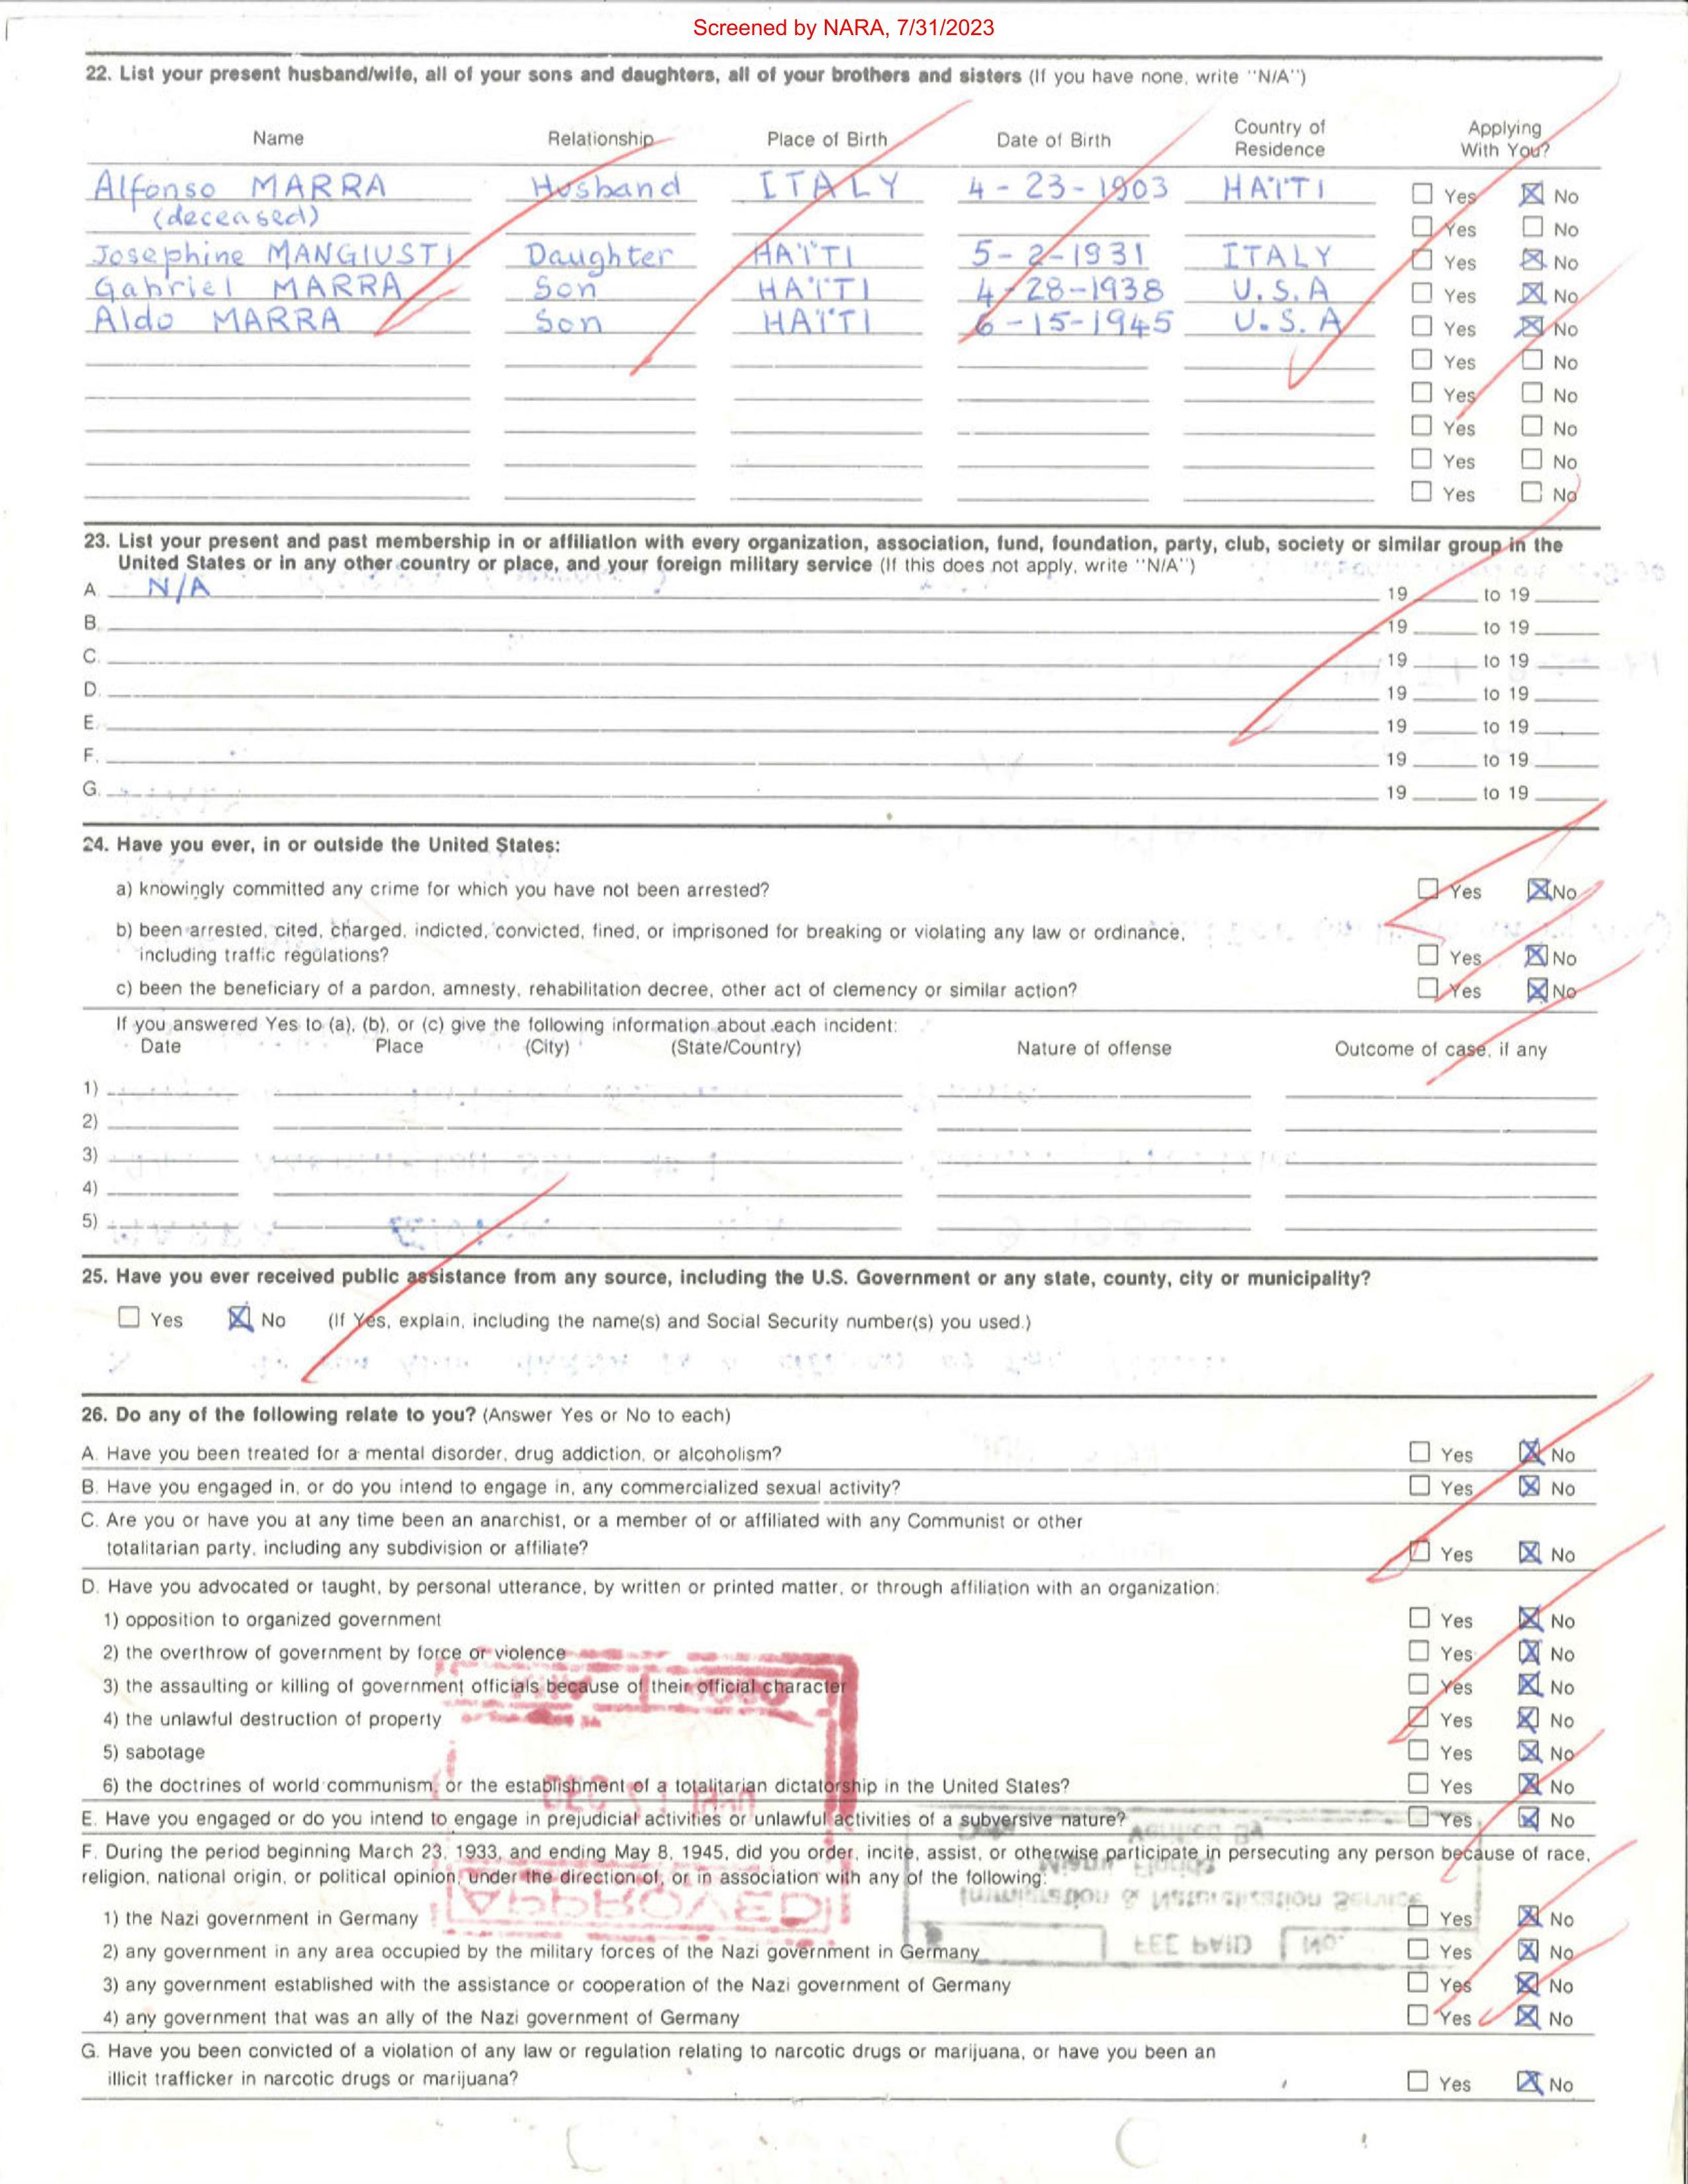 Screened by NARA, 7/31/2023
22. List your present husband/wife, all of your sons and daughters, all of your brothers and sisters (If you have none, write "N/A")
Name Relationship Place of Birth Date of Birth Country of Residence Applying With You?
Alfonso MARRA Husband ITALY 4-23-1903 HAÏTI Yes No
(deceased) Yes No
Josephine MANGIUSTI Daughter HAÏTI 5-2-1931 ITALY Yes No
Gabriel MARRA Son HAÏTI 4-28-1938 U.S.A Yes No
Aldo MARRA Son HAÏTI 6-15-1945 U.S.A Yes No
Yes No
Yes No
Yes No
Yes No
Yes No
23. List your present and past membership in or affiliation with every organization, association, fund, foundation, party, club, society or similar group in the
United States or in any other country or place, and your foreign military service (If this does not apply, write "N/A")
A. N/A 19 to 19
B. 19 to 19
C. 19 to 19
D. 19 to 19
E. 19 to 19
F. 19 to 19
G. 19 to 19
24. Have you ever, in or outside the United States:
a) knowingly committed any crime for which you have not been arrested? Yes No
b) been arrested, cited, charged, indicted, convicted, fined, or imprisoned for breaking or violating any law or ordinance,
including traffic regulations? Yes No
c) been the beneficiary of a pardon, amnesty, rehabilitation decree, other act of clemency or similar action? Yes No
If you answered Yes to (a), (b), or (c) give the following information about each incident:
Date Place (City) (State/Country) Nature of offense Outcome of case, if any
1)
2)
3)
4)
5)
25. Have you ever received public assistance from any source, including the U.S. Government or any state, county, city or municipality?
Yes No (If Yes, explain, including the name(s) and Social Security number(s) you used.)
26. Do any of the following relate to you? (Answer Yes or No to each)
A. Have you been treated for a mental disorder, drug addiction, or alcoholism? Yes No
B. Have you engaged in, or do you intend to engage in, any commercialized sexual activity? Yes No
C. Are you or have you at any time been an anarchist, or a member of or affiliated with any Communist or other
totalitarian party, including any subdivision or affiliate? Yes No
D. Have you advocated or taught, by personal utterance, by written or printed matter, or through affiliation with an organization:
1) opposition to organized government Yes No
2) the overthrow of government by force or violence Yes No
3) the assaulting or killing of government officials because of their official character Yes No
4) the unlawful destruction of property Yes No
5) sabotage Yes No
6) the doctrines of world communism, or the establishment of a totalitarian dictatorship in the United States? Yes No
E. Have you engaged or do you intend to engage in prejudicial activities or unlawful activities of a subversive nature? Yes No
F. During the period beginning March 23, 1933, and ending May 8, 1945, did you order, incite, assist, or otherwise participate in persecuting any person because of race,
religion, national origin, or political opinion, under the direction of, or in association with any of the following:
1) the Nazi government in Germany Yes No
2) any government in any area occupied by the military forces of the Nazi government in Germany Yes No
3) any government established with the assistance or cooperation of the Nazi government of Germany Yes No
4) any government that was an ally of the Nazi government of Germany Yes No
G. Have you been convicted of a violation of any law or regulation relating to narcotic drugs or marijuana, or have you been an
illicit trafficker in narcotic drugs or marijuana? Yes No
APPROVED
Verified By
Miami, Florida
Immigration & Naturalization Service
FEE PAID NO.